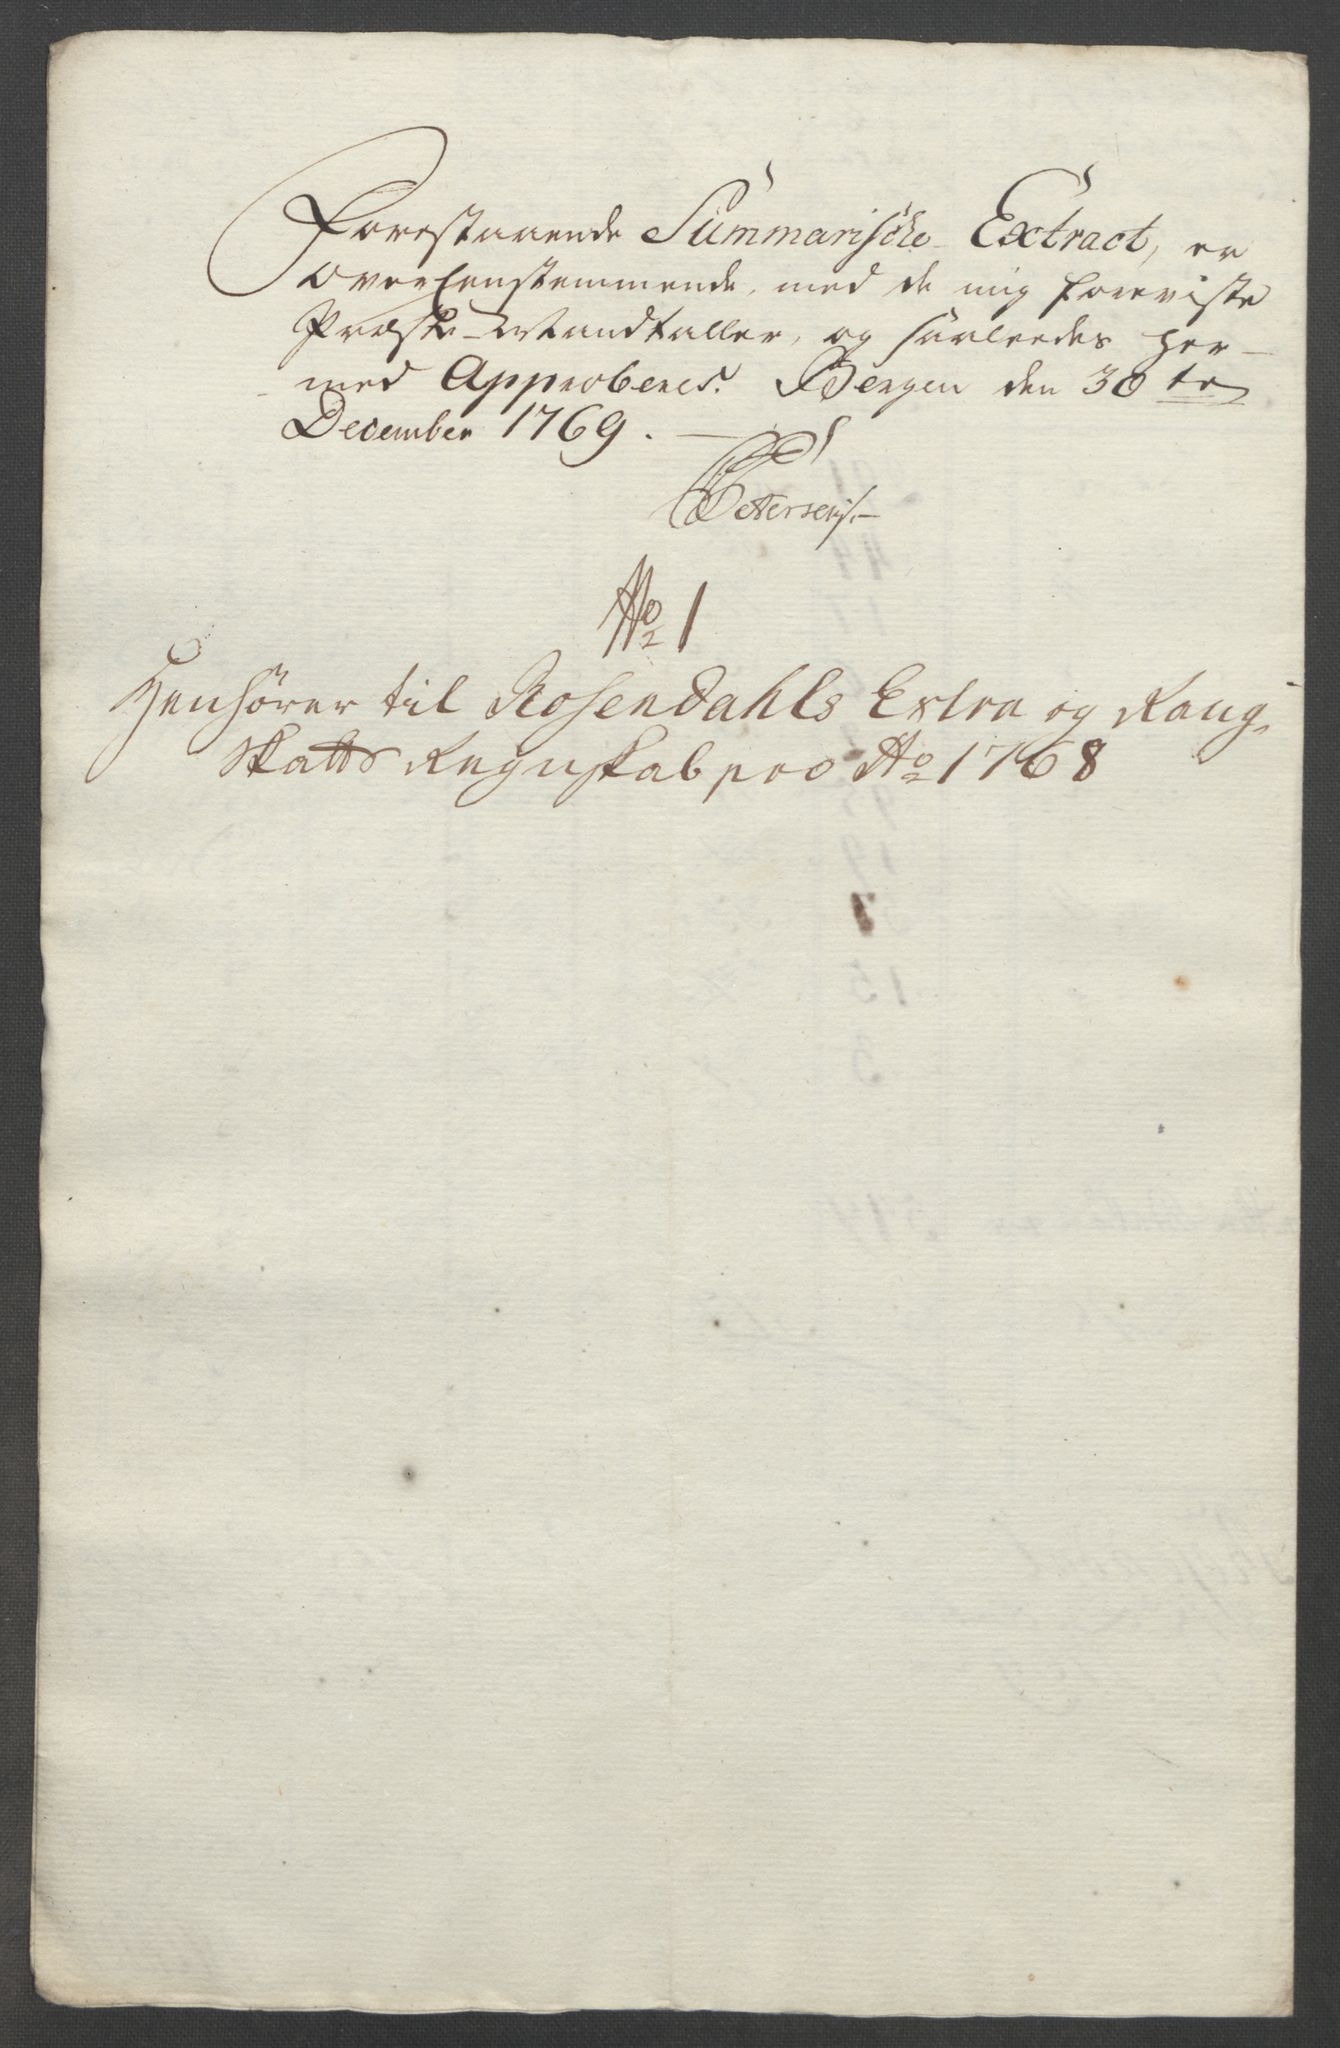 Forestaaende Summariske Extract, er
overEenstemmende, med de mig foreviste
Præste-Mandtaller, og saaleedes her-
med Approberes. Bergen den 30te
December 1769. —
Petersen
No 1
Henhörer til Rosendahls Extra og Rang
Skatts Regnskab pro Ao 1768